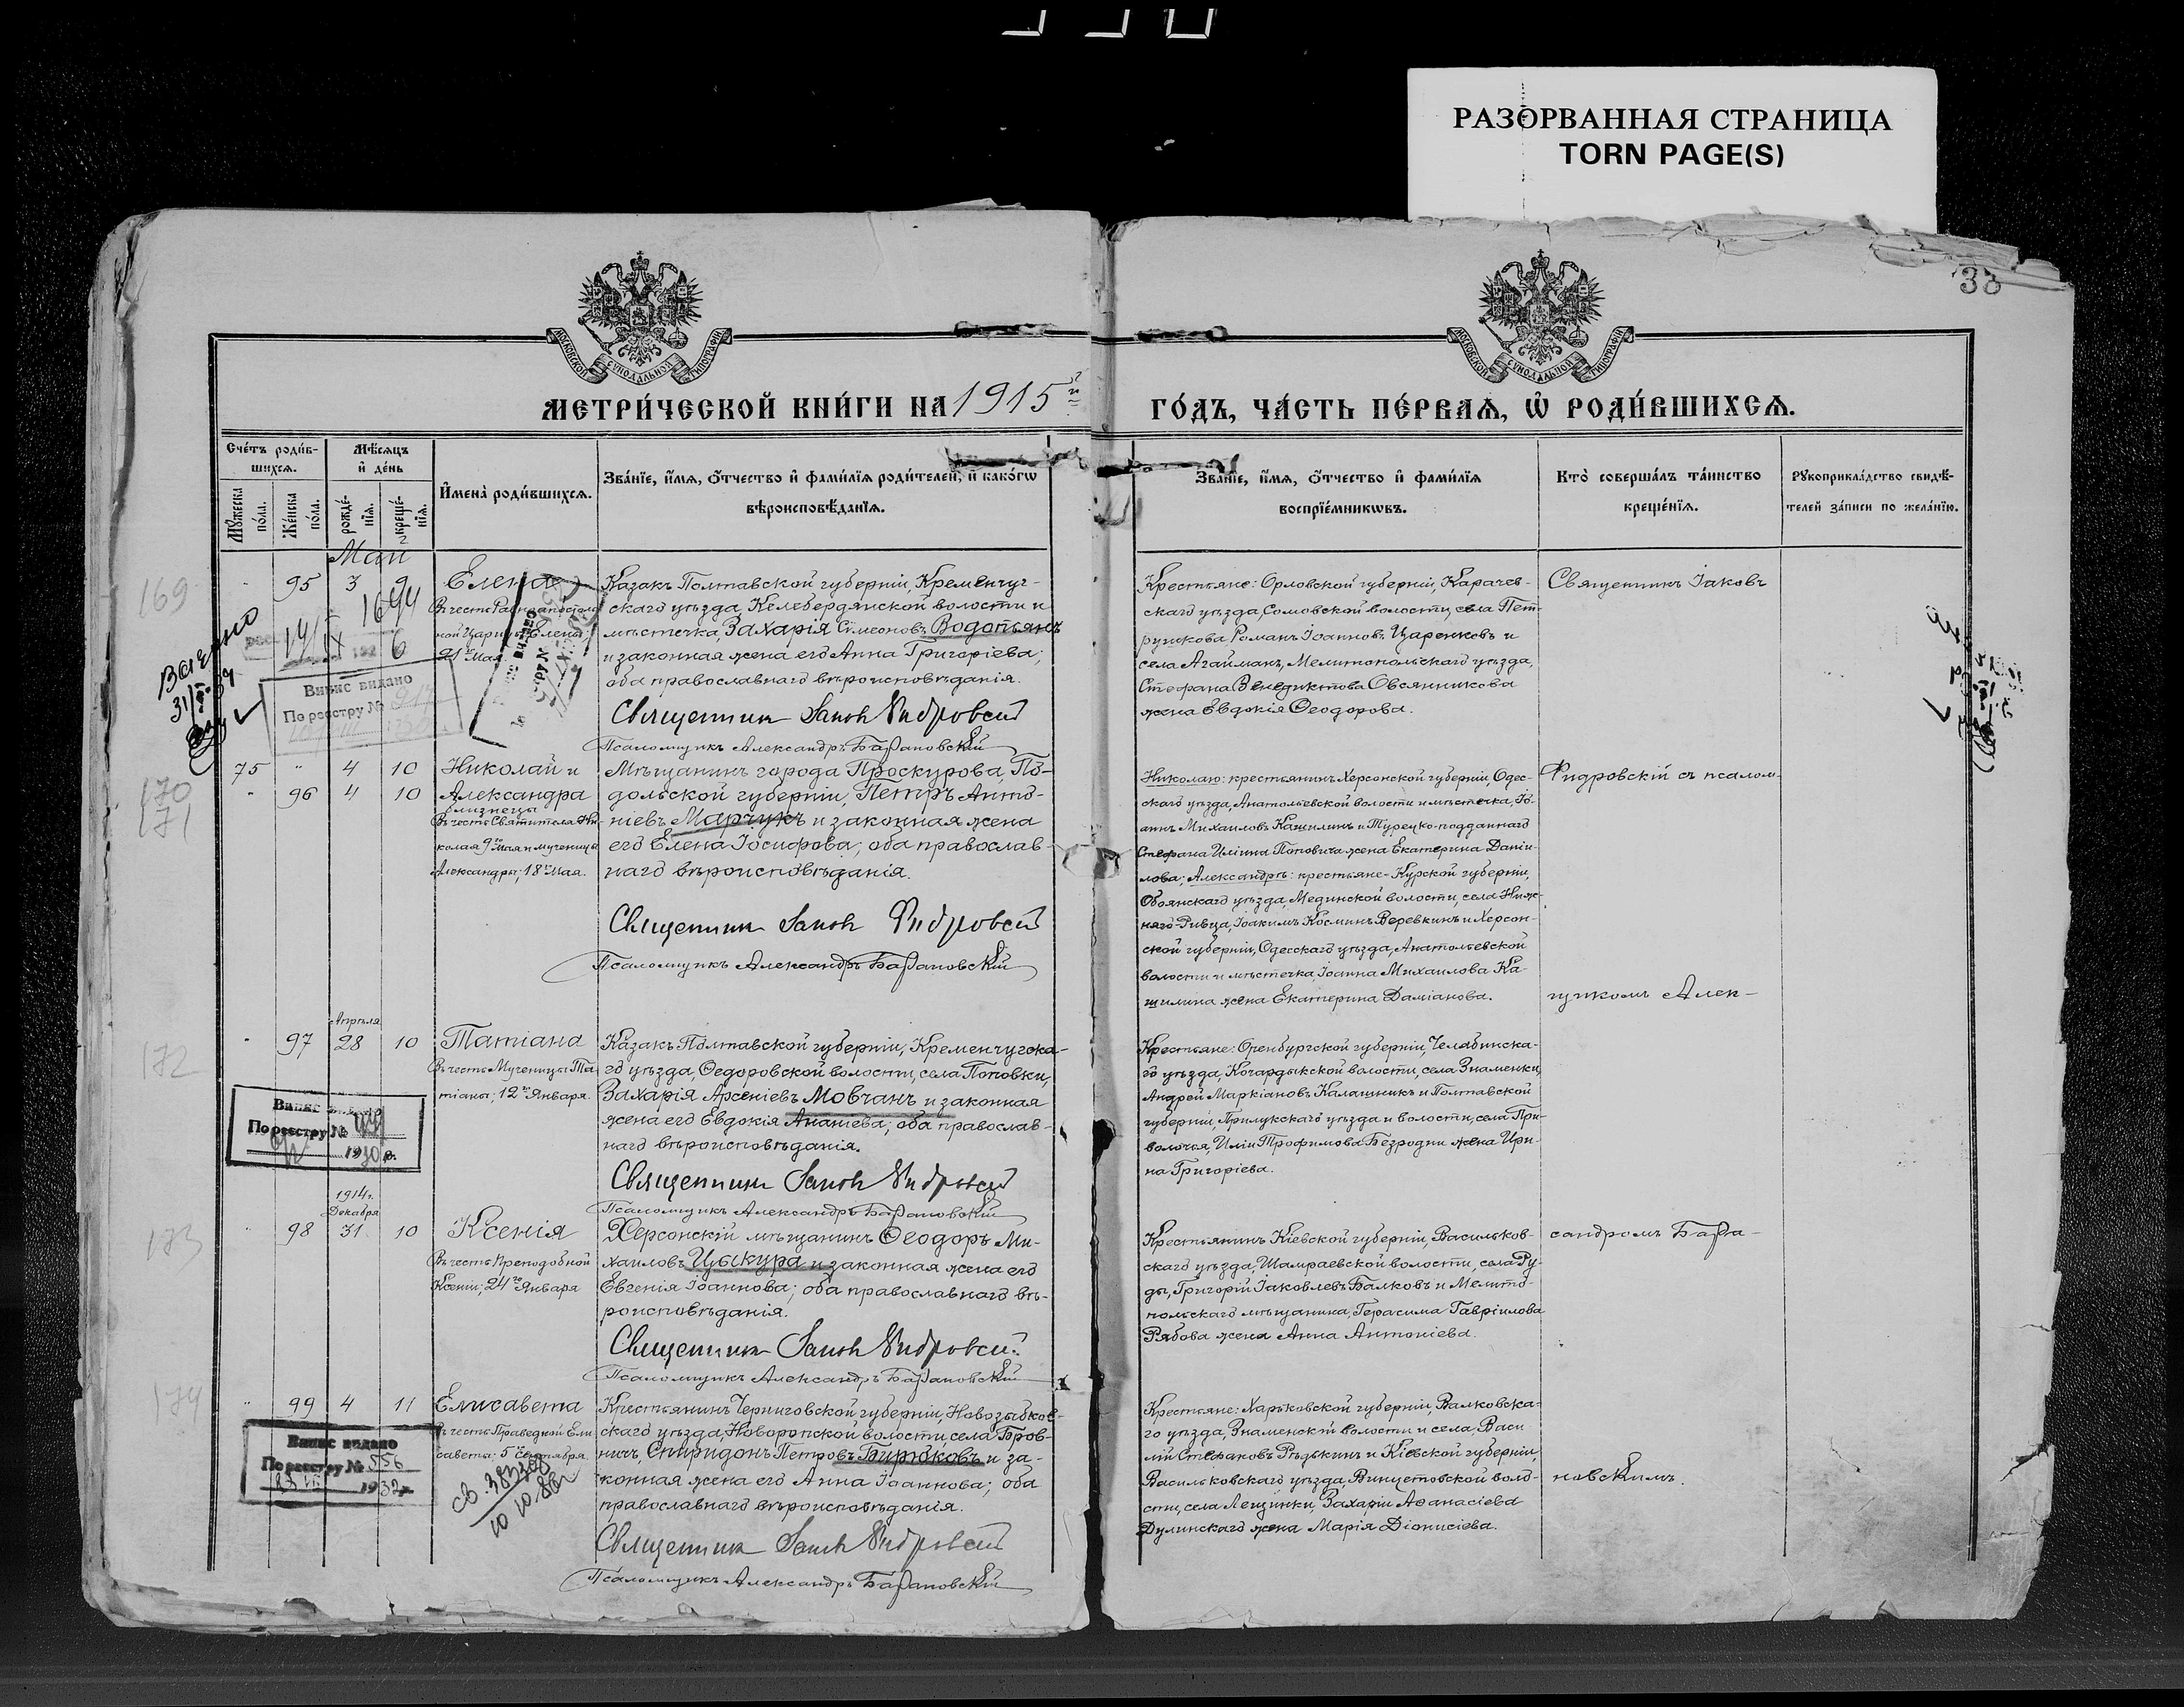 РАЗОРВАННАЯ СТРАНИЦА
TORN PAGE(S)
38
МОСКОВСКОЙ СѴНОДАЛЬНОЙ ТИПОГРАФІИ
МОСКОВСКОЙ СѴНОДАЛЬНОЙ ТИПОГРАФІИ
МЕТРИ́ЧЕСКОЙ КНИ́ГИ НА 1915й
ГО́ДЪ, ЧА́СТЬ ПЕ́РВАѦ, Ѡ҆ РОДИ́ВШИХСѦ.
Сче́тъ роди́в-
шихсѧ.
Мѣ́сяцъ
и҆ де́нь
Мꙋ́жеска по́ла.
Же́нска по́ла.
рожде́-нїѧ.
креще́-нїѧ.
И҆мена̀ роди́вшихсѧ.
Зва́нїе, и҆́мѧ, ѻ҆́тчество и҆ фами́лїѧ роди́телей, и҆ како́гѡ
вѣроисповѣ́данїѧ.
Зва́нїе, и҆́мѧ, ѻ҆́тчество и҆ фами́лїѧ
воспрїе́мникѡвъ.
Кто̀ соверша́лъ та́инство
креще́нїѧ.
Рꙋкоприкла́дство свидѣ́-
телей за́писи по жела́нїю.
Май
169
95 3 9 Елена
21 Мая.
1694
Казакъ Полтавской губерніи, Кременчуг-
скаго уѣзда, Келебердянской волости и
мѣстечка, Захарія Сѵмеоновъ Водопьянъ
и законная жена его Анна Григоріева;
оба православнаго вѣроисповѣданія.
Священникъ Іаковъ Фидровскій
Псаломщикъ Александръ Барановскій
Крестьяне: Орловской губерніи, Карачев-
скаго уѣзда, Сомовской волости, села Пет-
рушкова, Романъ Іоанновъ Царенковъ и
села Агайманъ, Мелитопольскаго уѣзда,
Стефана Венедиктова Овсянникова
жена Евдокія Ѳеодорова.
Священникъ Іаковъ
Випис видано
По реєстру №
170
171
75 " 4 10 Николай и
" 96 4 10 Александра
близнецы
Въ честь Святителя Ни-
колая 9го Мая и мученицы
Александры; 18го Мая.
Мѣщанинъ города Проскурова, По-
дольской губерніи, Петръ Анто-
ніевъ Марчукъ и законная жена
его Елена Іосифова; оба православ-
наго вѣроисповѣданія.
Священникъ Іаковъ Фидровскій
Псаломщикъ Александръ Барановскій
Николаю: крестьянинъ Херсонской губерніи, Одес-
скаго уѣзда, Анатольевской волости и мѣстечка, Іо-
аннъ Михаиловъ Кашилинъ и Турецко-подданнаго
Стефана Иліина Поповича жена Екатерина Даніи-
лова; Александрѣ: крестьяне-Курской губерніи,
Обоянскаго уѣзда, Мединской волости, села Ниж-
няго-Ривца, Іоакимъ Косминъ Веревкинъ и Херсон-
ской губерніи, Одесскаго уѣзда, Анатольевской
волости и мѣстечка, Іоанна Михаилова Ка-
шилина жена Екатерина Даміанова.
Фидровскій съ псалом-
щикомъ Алек-
172
Апрѣля
" 97 28 10 Татіана
Въ честь Мученицы Та-
тіаны; 12го Января.
Казакъ Полтавской губерніи, Кременчугска-
го уѣзда, Ѳедоровской волости, села Поповки,
Захарія Арсеніевъ Мовчанъ и законная
жена его Евдокія Ананіева; оба православ-
наго вѣроисповѣданія.
Священникъ Іаковъ Фидровскій
Псаломщикъ Александръ Барановскій
Крестьяне: Оренбургской губерніи, Челябинска-
го уѣзда, Кочардыкской волости, села Знаменки,
Андрей Маркіановъ Калашникъ и Полтавской
губерніи, Прилукскаго уѣзда и волости, села При-
волочья, Иліи Трофимова Безродни жена Ири-
на Григоріева.
Випис видано
По реєстру №
1930р.
173
1914г.
Декабря
" 98 31 10 Ксенія
Въ честь Преподобной
Ксеніи; 24го Января
Херсонскій мѣщанинъ Ѳеодоръ Ми-
хаиловъ Цыкура и законная жена его
Евгенія Іоаннова; оба православнаго вѣ-
роисповѣданія.
Священникъ Іаковъ Фидровскій
Псаломщикъ Александръ Барановскій
Крестьянинъ Кіевской губерніи, Васильков-
скаго уѣзда, Шамраевской волости, села Ру-
ды, Григорій Іаковлевъ Балковъ и Мелито-
польскаго мѣщанина, Герасима Гавріилова
Рябова жена Анна Антоніева.
сандромъ Бара-
174
" 99 4 11 Елисавета
Въ честь Праведной Ели-
саветы; 5го Сентября.
Крестьянинъ Черниговской губерніи, Новозыбков-
скаго уѣзда, Новоропской волости, села Бров-
ничъ, Спиридонъ Петровъ Бирюковъ и за-
конная жена его Анна Іоаннова; оба
православнаго вѣроисповѣданія.
Священникъ Іаковъ Фидровскій
Псаломщикъ Александръ Барановскій
Крестьяне: Харьковской губерніи, Валковска-
го уѣзда, Знаменской волости и села, Васи-
лій Стефановъ Рѣдькинъ и Кіевской губерніи,
Васильковскаго уѣзда, Винцетовской воло-
сти, села Лещинки, Захаріи Аѳанасіева
Дулинскаго жена Марія Діонисіева.
новскимъ.
Випис видано
По реєстру № 556
1932р